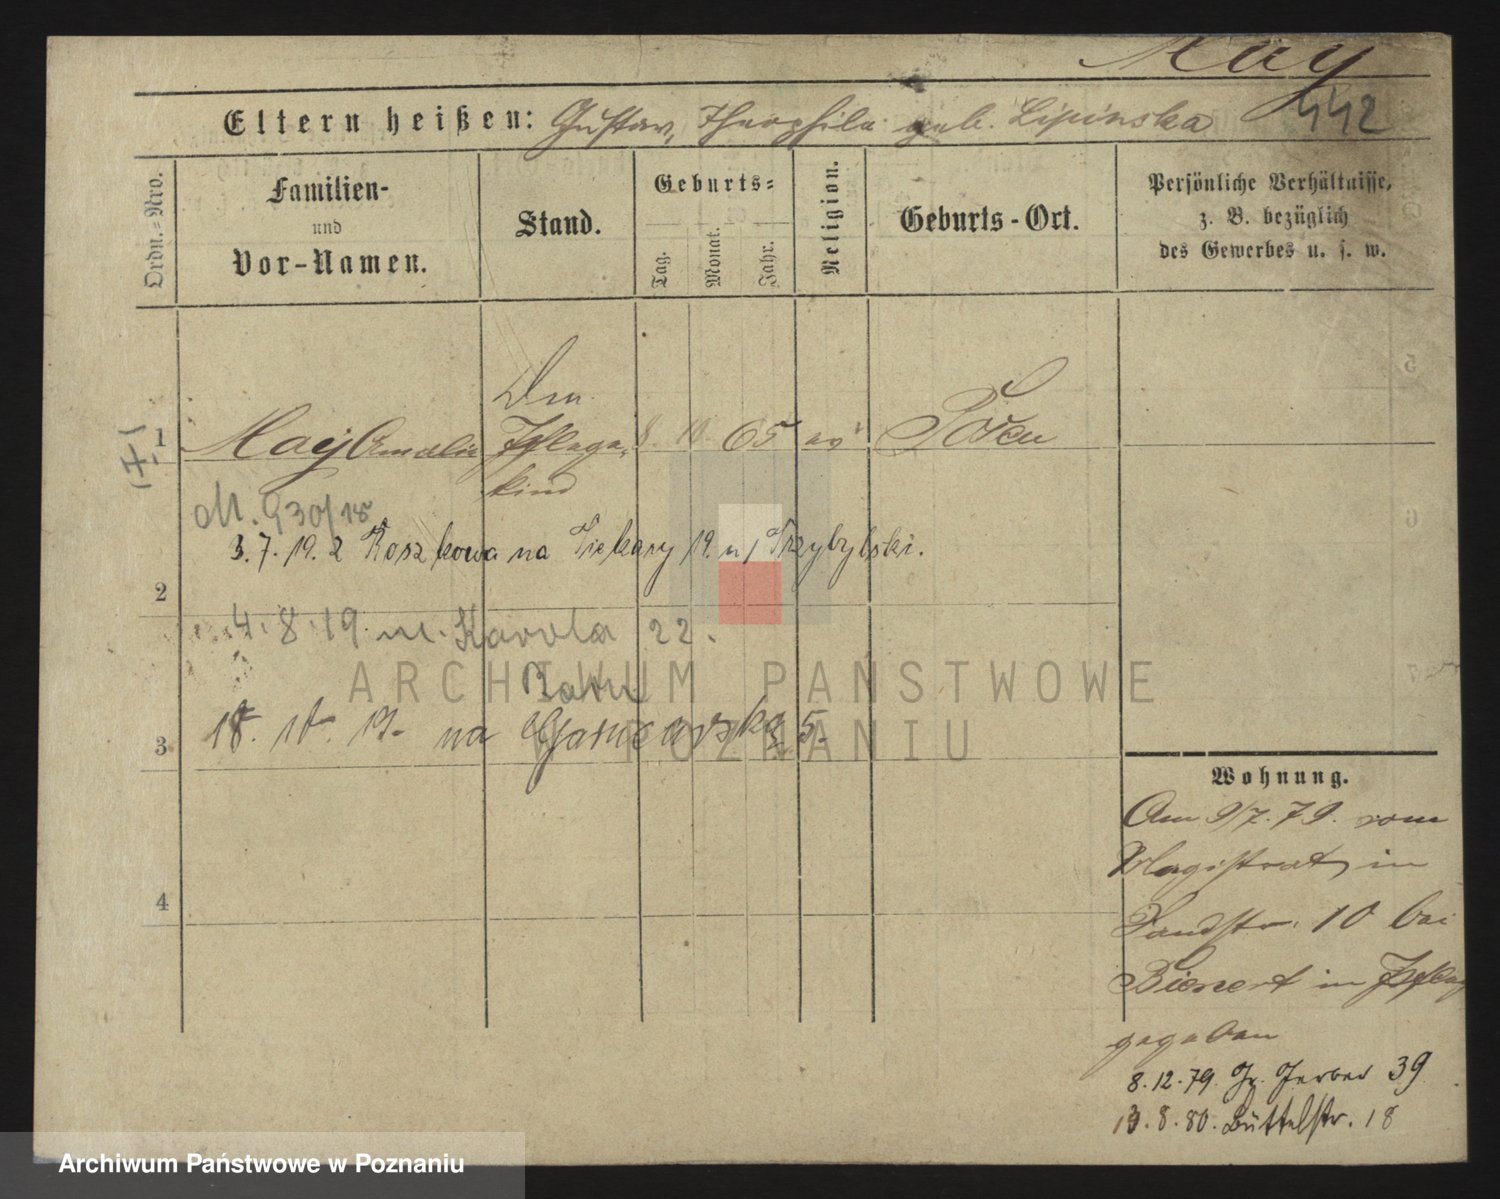 May
442
Eltern heißen: Gustav, Theophila geb. Lipinska
Ordn.-Nro.
Familien-
und
Vor-Namen.
Stand.
Geburts-
Tag.
Monat.
Jahr.
Religion.
Geburts-Ort.
Persönliche Verhältnisse,
z. B. bezüglich
des Gewerbes u. s. w.
1 May Amalie Pflege- 8. 10. 65 ev Posen
kind
M. 930/18
3.7.19. z Roszkowa na Piekary 19. u/ Przybylski.
2
4.8.19 u. Karola 22.
18. 10. 19. na Garncarską 5.
3
4
Wohnung.
Am 9/7.79. vom
Magistrat in
Sandstr. 10 bei
Bienert in Pflege
gegeben
8.12.79. Gr. Gerber 39
13.8.80. Büttelstr. 18
ARCHIWUM PAŃSTWOWE
W POZNANIU
Archiwum Państwowe w Poznaniu